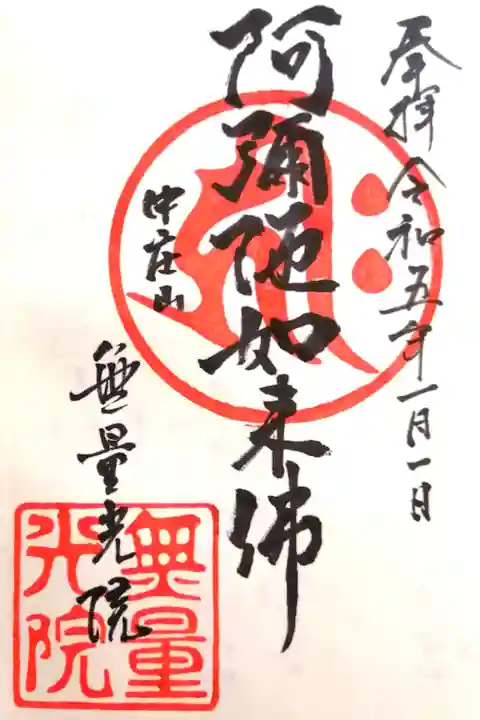 奉拝 令和五年一月一日
阿彌陀如来佛
中庄山
無量光院
無量光院